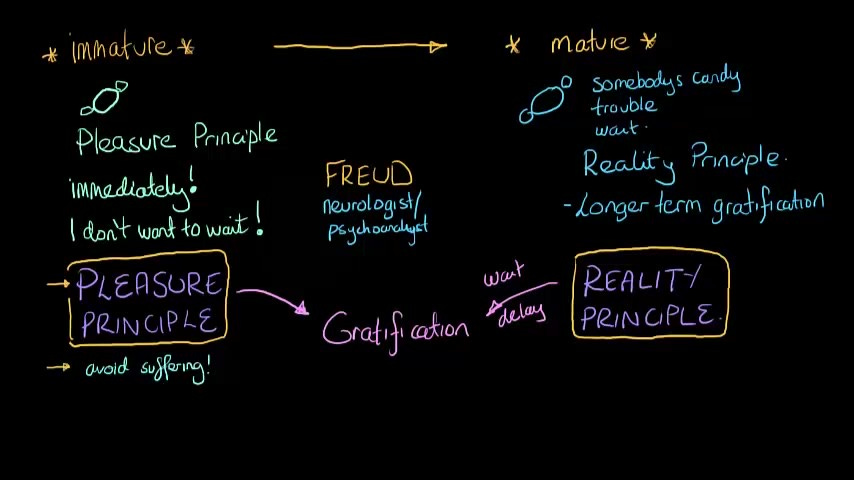 * immature *
Pleasure Principle
immediately!
I don't want to wait!
PLEASURE
PRINCIPLE
avoid suffering!
FREUD
neurologist/
psychoanalyst
Gratification
wait
delay
* mature *
somebodys candy
trouble
wait.
Reality Principle.
- Longer term gratification
REALITY
PRINCIPLE.